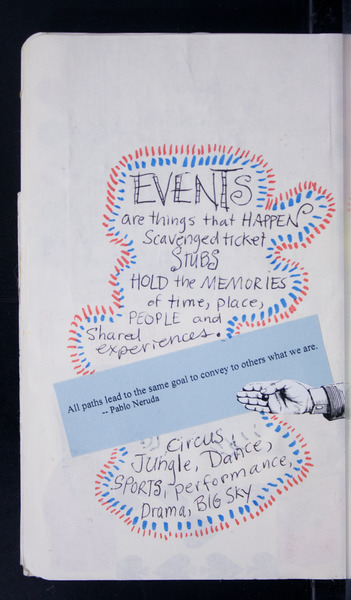 EVENTS
are things that HAPPEN
Scavenged ticket
STUBS
HOLD the MEMORIES
of time, place,
PEOPLE and
Shared
experiences.
All paths lead to the same goal to convey to others what we are.
-- Pablo Neruda
Circus,
Jungle, Dance,
SPORTS, performance,
Drama, BIG SKY